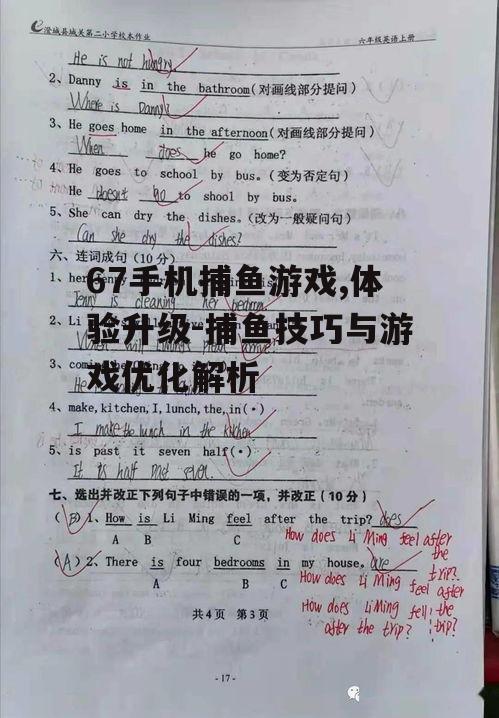 澄城县城关第二小学校本作业 六年级英语上册
He is not hungry
2、Danny is in the bathroom(对画线部分提问)
Where is Danny?
3、He goes home in the afternoon(对画线部分提问)
When does he go home?
4、He goes to school by bus。(变为否定句)
He doesn't go to shool by bus.
5、She can dry the dishes。(改为一般疑问句)
Can she dry the dishes?
六、连词成句(10分)
67手机捕鱼游戏,体
验升级-捕鱼技巧与游
戏优化解析
1、her
Jenny is cleaning her bedroom.
2、Li
3、com
4、make,kitchen,I,lunch,the,in(•)
I make the lunch in the kitchen
5、is past it seven half(•)
It is half past seven.
七、选出并改正下列句子中错误的一项,并改正(10分)
(B)1、How is Li Ming feel after the trip? does
A B C
How does Li Ming feel after the trip?
(A)2、There is four bedrooms in my house。are
A B C
How does Li Ming feel after the trip?
How does Li Ming fell after the trip?
共4页 第3页
-17-